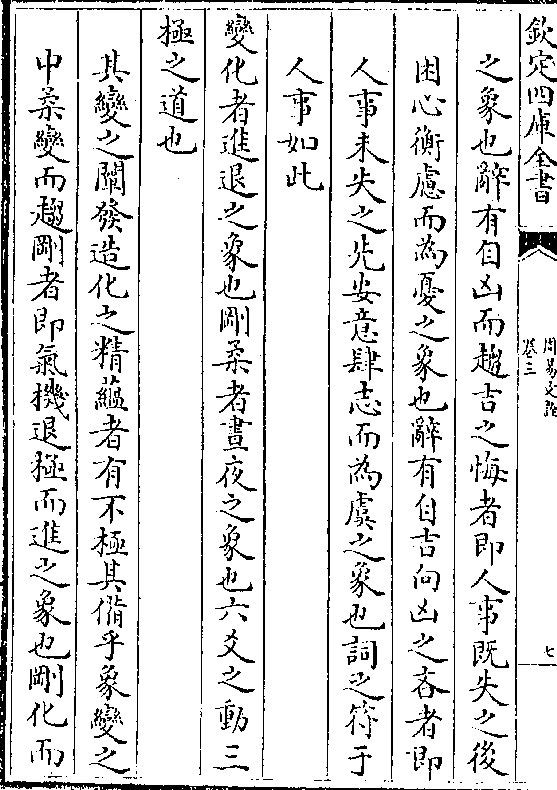 欽定四庫全書
周易文詮
卷三
七
之象也辭有自凶而趨吉之悔者即人事既失之後
困心衡慮而為憂之象也辭有自吉向凶之吝者即
人事未失之先安意肆志而為虞之象也詞之符于
人事如此
變化者進退之象也剛柔者晝夜之象也六爻之動三
極之道也
其變之闡發造化之精蘊者有不極其備乎象變之
中柔變而趨剛者即氣機退極而進之象也剛化而